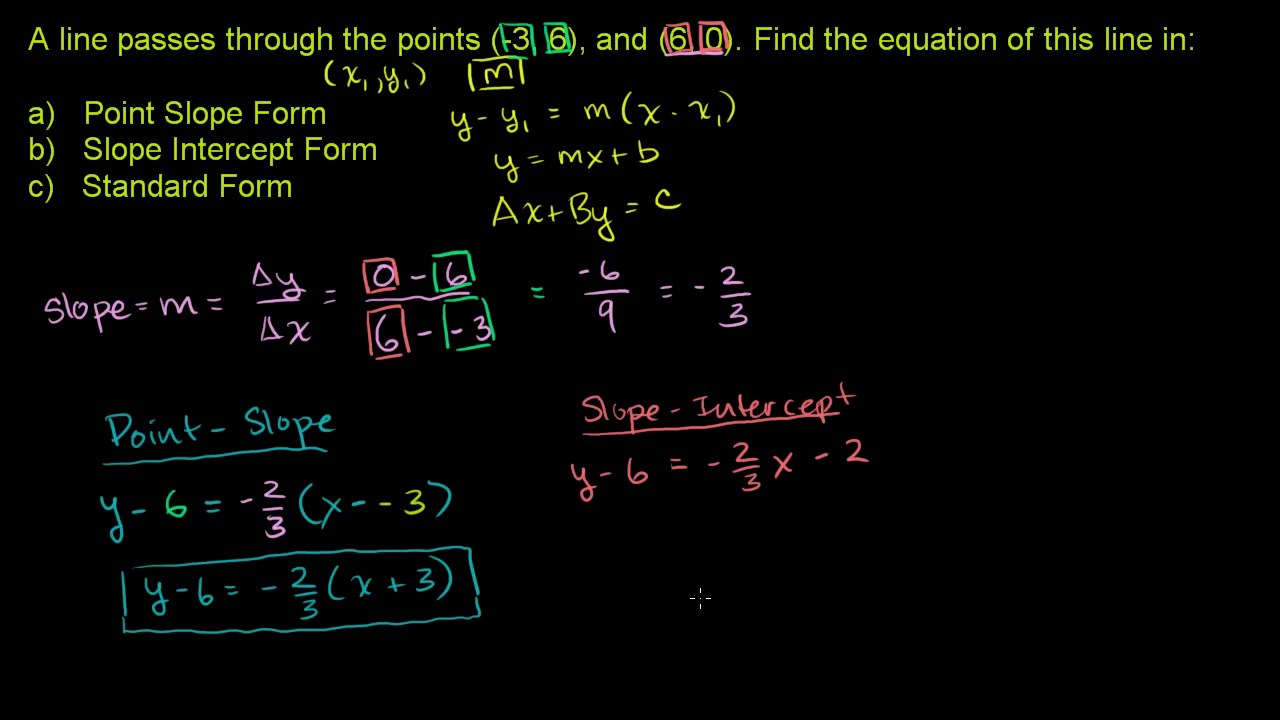 A line passes through the points (-3, 6), and (6, 0). Find the equation of this line in:
(x₁, y₁) m
a) Point Slope Form
y - y₁ = m(x - x₁)
b) Slope Intercept Form
y = mx + b
c) Standard Form
Ax + By = C
Slope = m = Δy/Δx = (0 - 6)/(6 - -3) = -6/9 = -2/3
Point - Slope
y - 6 = -2/3 (x - -3)
y - 6 = -2/3 (x + 3)
Slope - Intercept
y - 6 = -2/3 x - 2